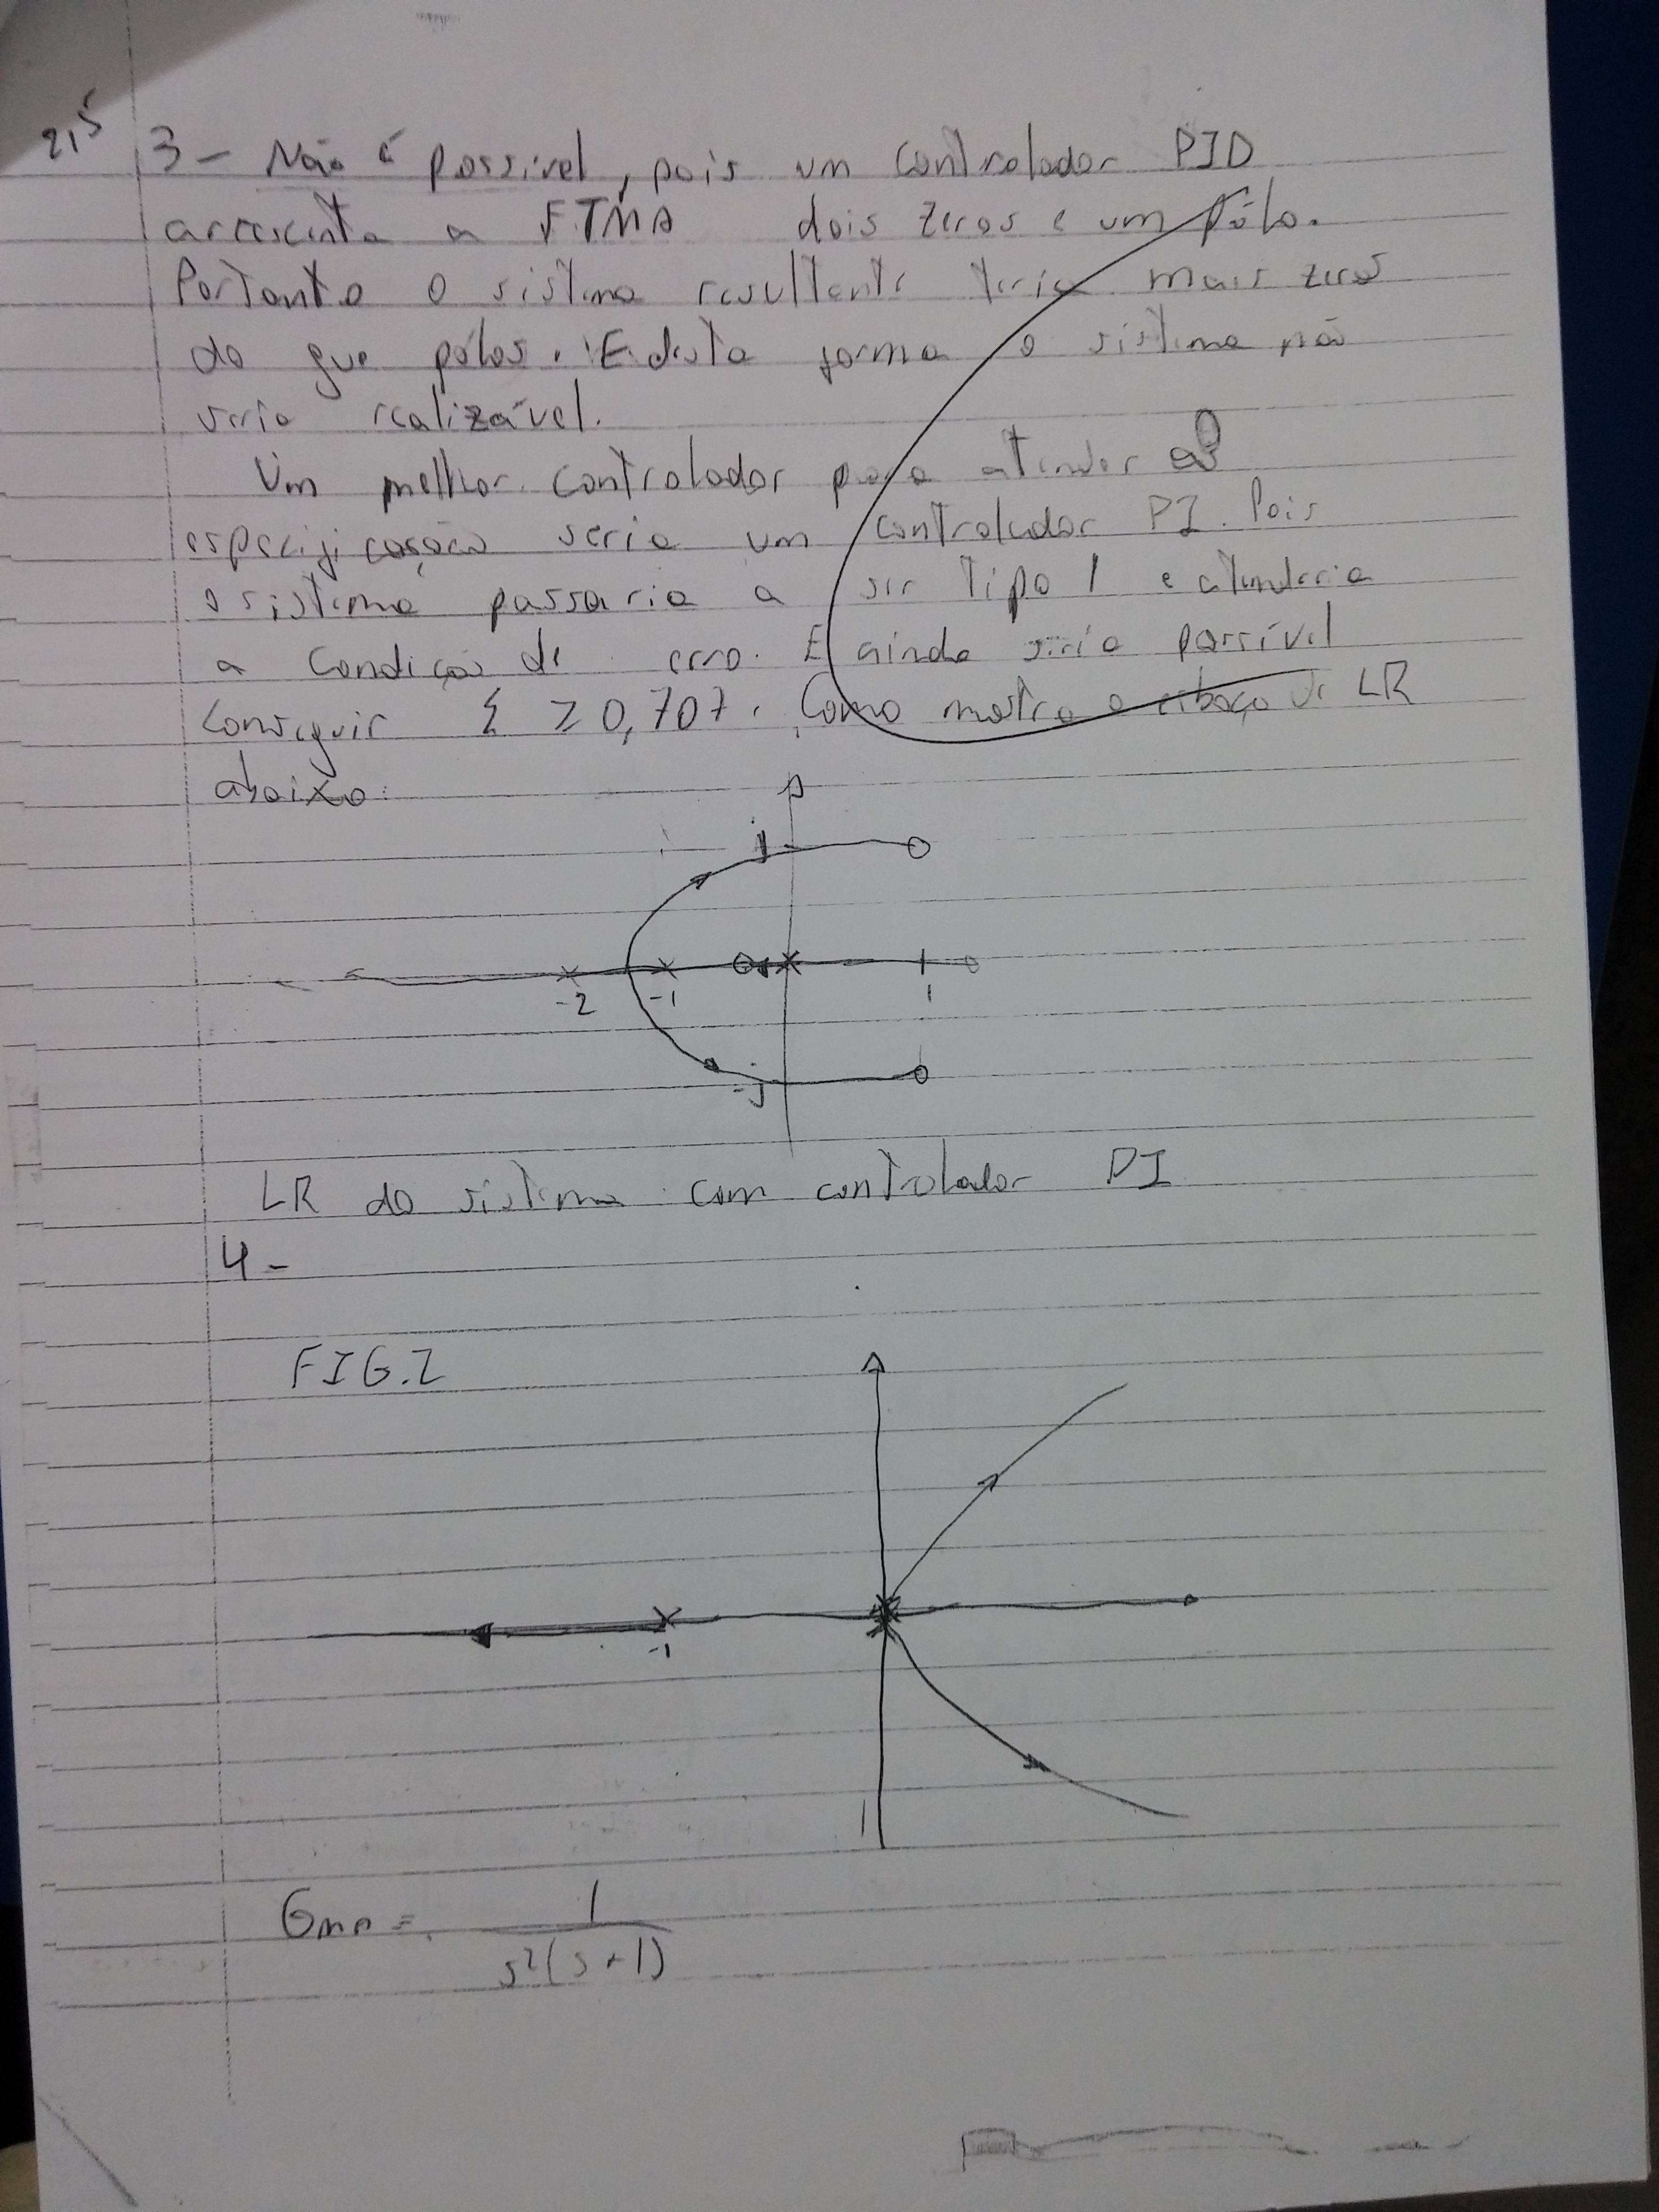 2,5
3 - Não é possível, pois um controlador PID
acrescenta a FTMA dois zeros e um pólo.
Portanto o sistema resultante teria mais zeros
do que pólos. E desta forma o sistema não
seria realizável.
Um melhor controlador para atender
especificação seria um controlador PI. Pois
o sistema passaria a ser tipo 1 e atenderia
a condição de erro. E ainda seria possível
conseguir ξ ≥ 0,707. Como mostra o esboço do LR
abaixo:
j
-2 -1 1
-j
LR do sistema com controlador PI
4 -
FIG.2
-1
GMA = 1
s²(s+1)